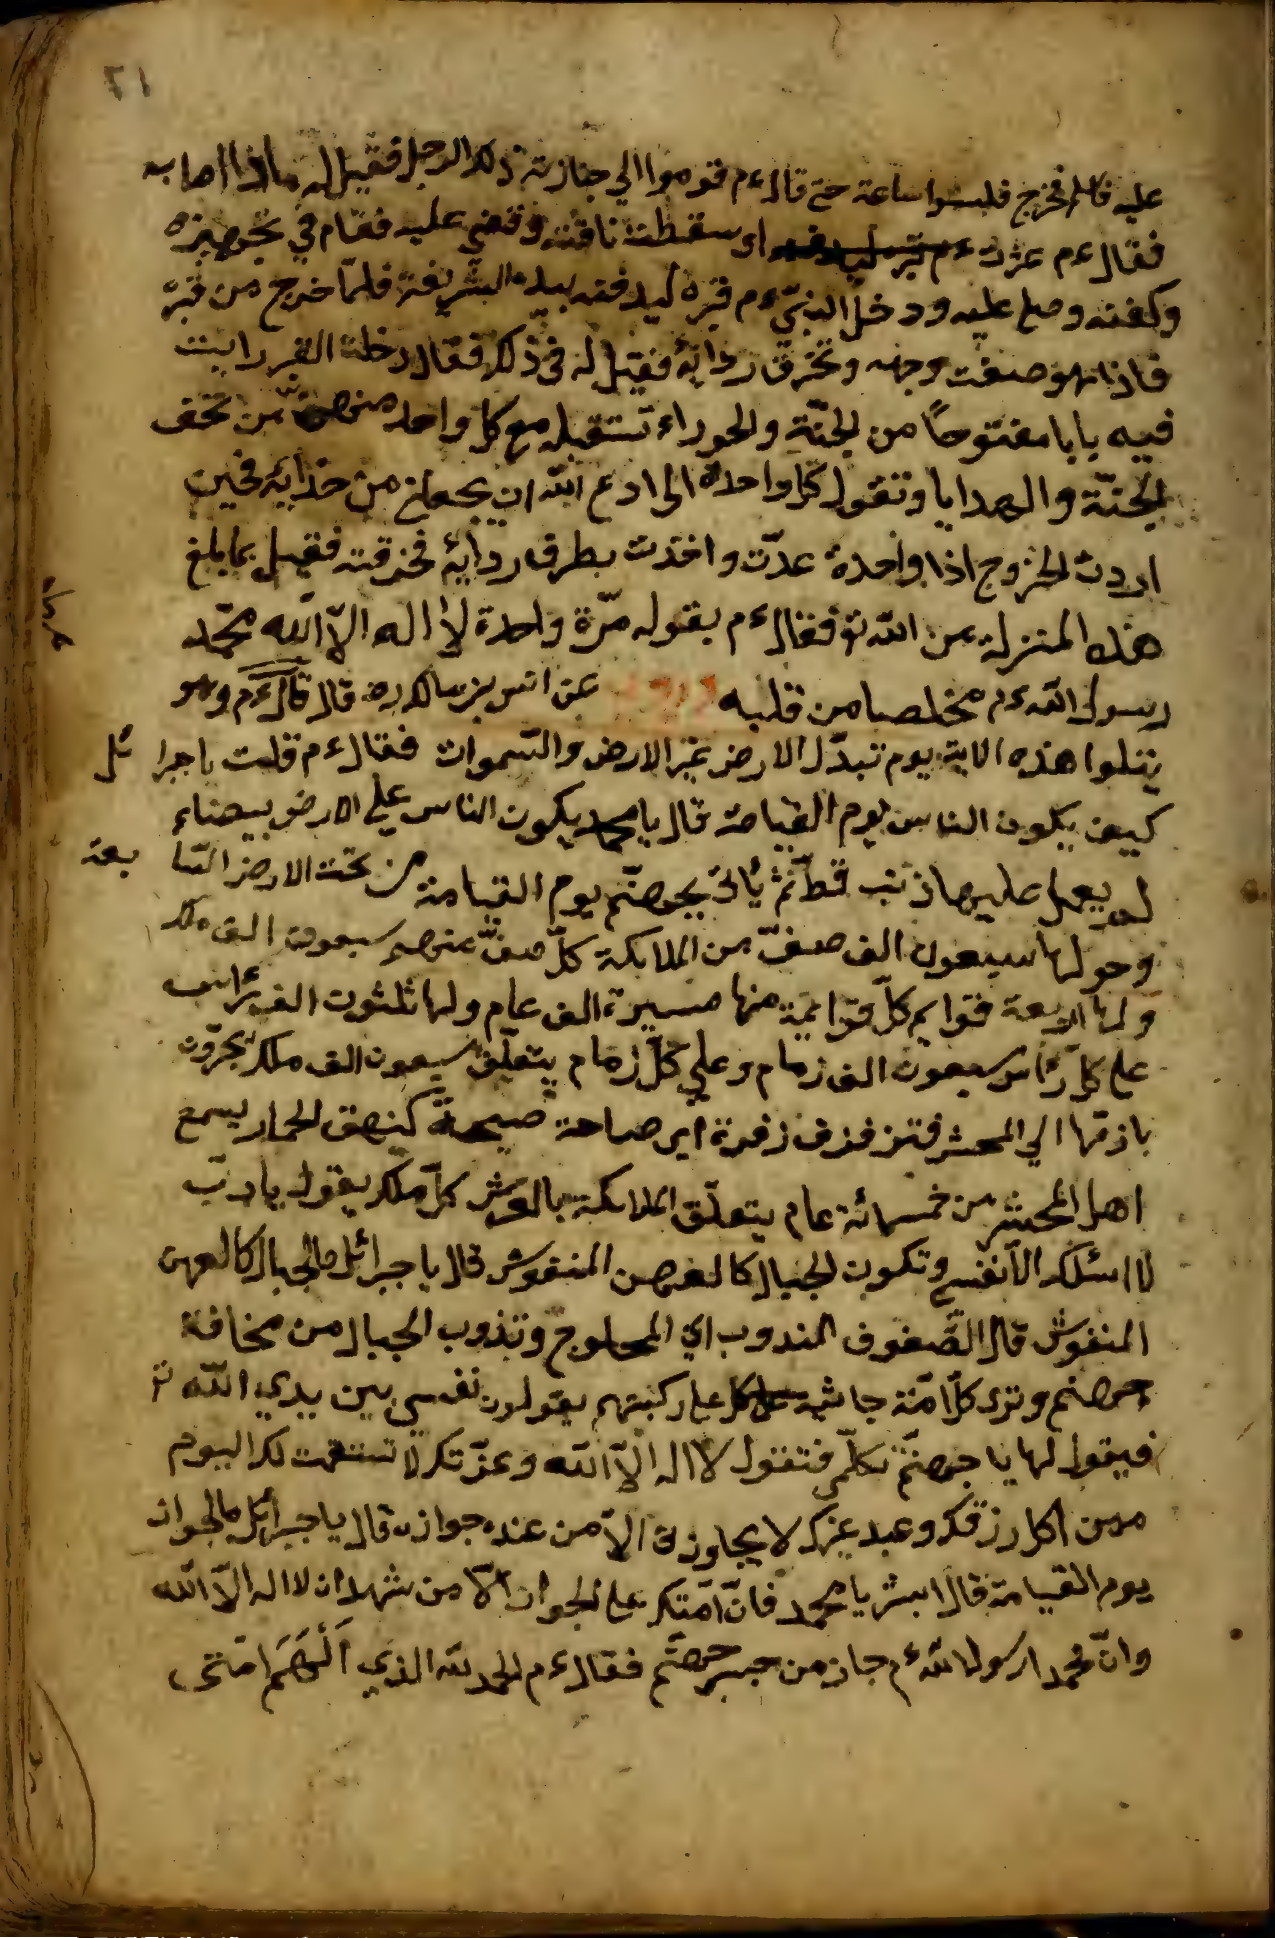 ٢١
عليه فلم يخرج فلبثوا ساعة حتى قال ءم قوموا الي جنازة ذلك الرجل فقيل له ماذا اصابه
فقال ءم عثرت او سقطت ناقته وقضي عليه فقام في تجهيزه
وكفنه وصلى عليه ودخل النبيّ ءم قبره ليدفنه بيده الشريفة فلمّا خرج من قبره
فاذا هو وجهه وتخرق ردائه فقيل له فى ذلك فقال دخلت القبر رايت
فيه بابا مفتوحاً من الجنّة والحوراء تستقبله مع كل واحد منهنّ من تحف
الجنّة والهدايا وتقول كل واحدة الى ادع الله ان يجعلنى من خدايه فحين
اردت الخروج اذا واحدة عدّت واخذت بطرف ردايه فخرقته فقيل بما بلغ
هذه المنزلة من الله تع فقال ءم بقوله مرّة واحدة لا اله الاّ الله محمّد
رسول الله ءم مخلصا من قلبه عن انس بن مالك رض قال قال ءم وهو
يتلوا هذه الاية يوم تبدّل الارض غير الارض والسّموات فقال ءم قلت يا جبرائل
كيف يكون الناس يوم القيامة قال يا محمد يكون الناس على الارض بيضاء
لم يعمل عليها ذنب قطّ ثمّ يأتى بجهنّم يوم القيامة من تحت الارض السّابعة
وحولها سبعون الف صفّ من الملائكة كلّ صفّ منهم سبعون الف ملك
ولها اربعة قوايم كلّ قوايمة منها مسيرة الف عام ولها ثلثون الف رأس
على كلّ رأس سبعون الف زمام وعلي كلّ زمام يتعلّق سبعون الف ملك يجرّون
بازمّتها الي المحشر فتزفزف زفرة اي صاحة صيحة كنهق الحمار يسمع
اهل المحشر من خمسمائة عام يتعلّق الملائكة بالعرش كلّ ملك يقول يا ربّ
لا اسئلك الاّ نفسى وتكون الجبال كالعهن المنفوش قال يا جبرائل ما الجبال كالعهن
المنفوش قال الصّفوف المندوب اي المحلوج وتذوب الجبال من مخافة
جهنم وترى كلّ امّة جاثية على ركبتهم يقولون نفسي بين يدي الله تع
فيقول لها يا جهنّم تكلّمى فتقول لا اله الاّ الله وعزّتك لا تنتقمت لك اليوم
ممن اكل رزقك وعبد غيرك لا يجاوزنى الاّ من عنده جواز قال يا جبرائل ما الجواز
يوم القيامة قال ابشر يا محمد فانّ امّتك على الجواز الاّ من شهد ان لا اله الاّ الله
وانّ محمدا رسول الله ءم جاز من جسر جهنّم فقال ءم الحمد لله الذي اَلْهَمَ امّتى